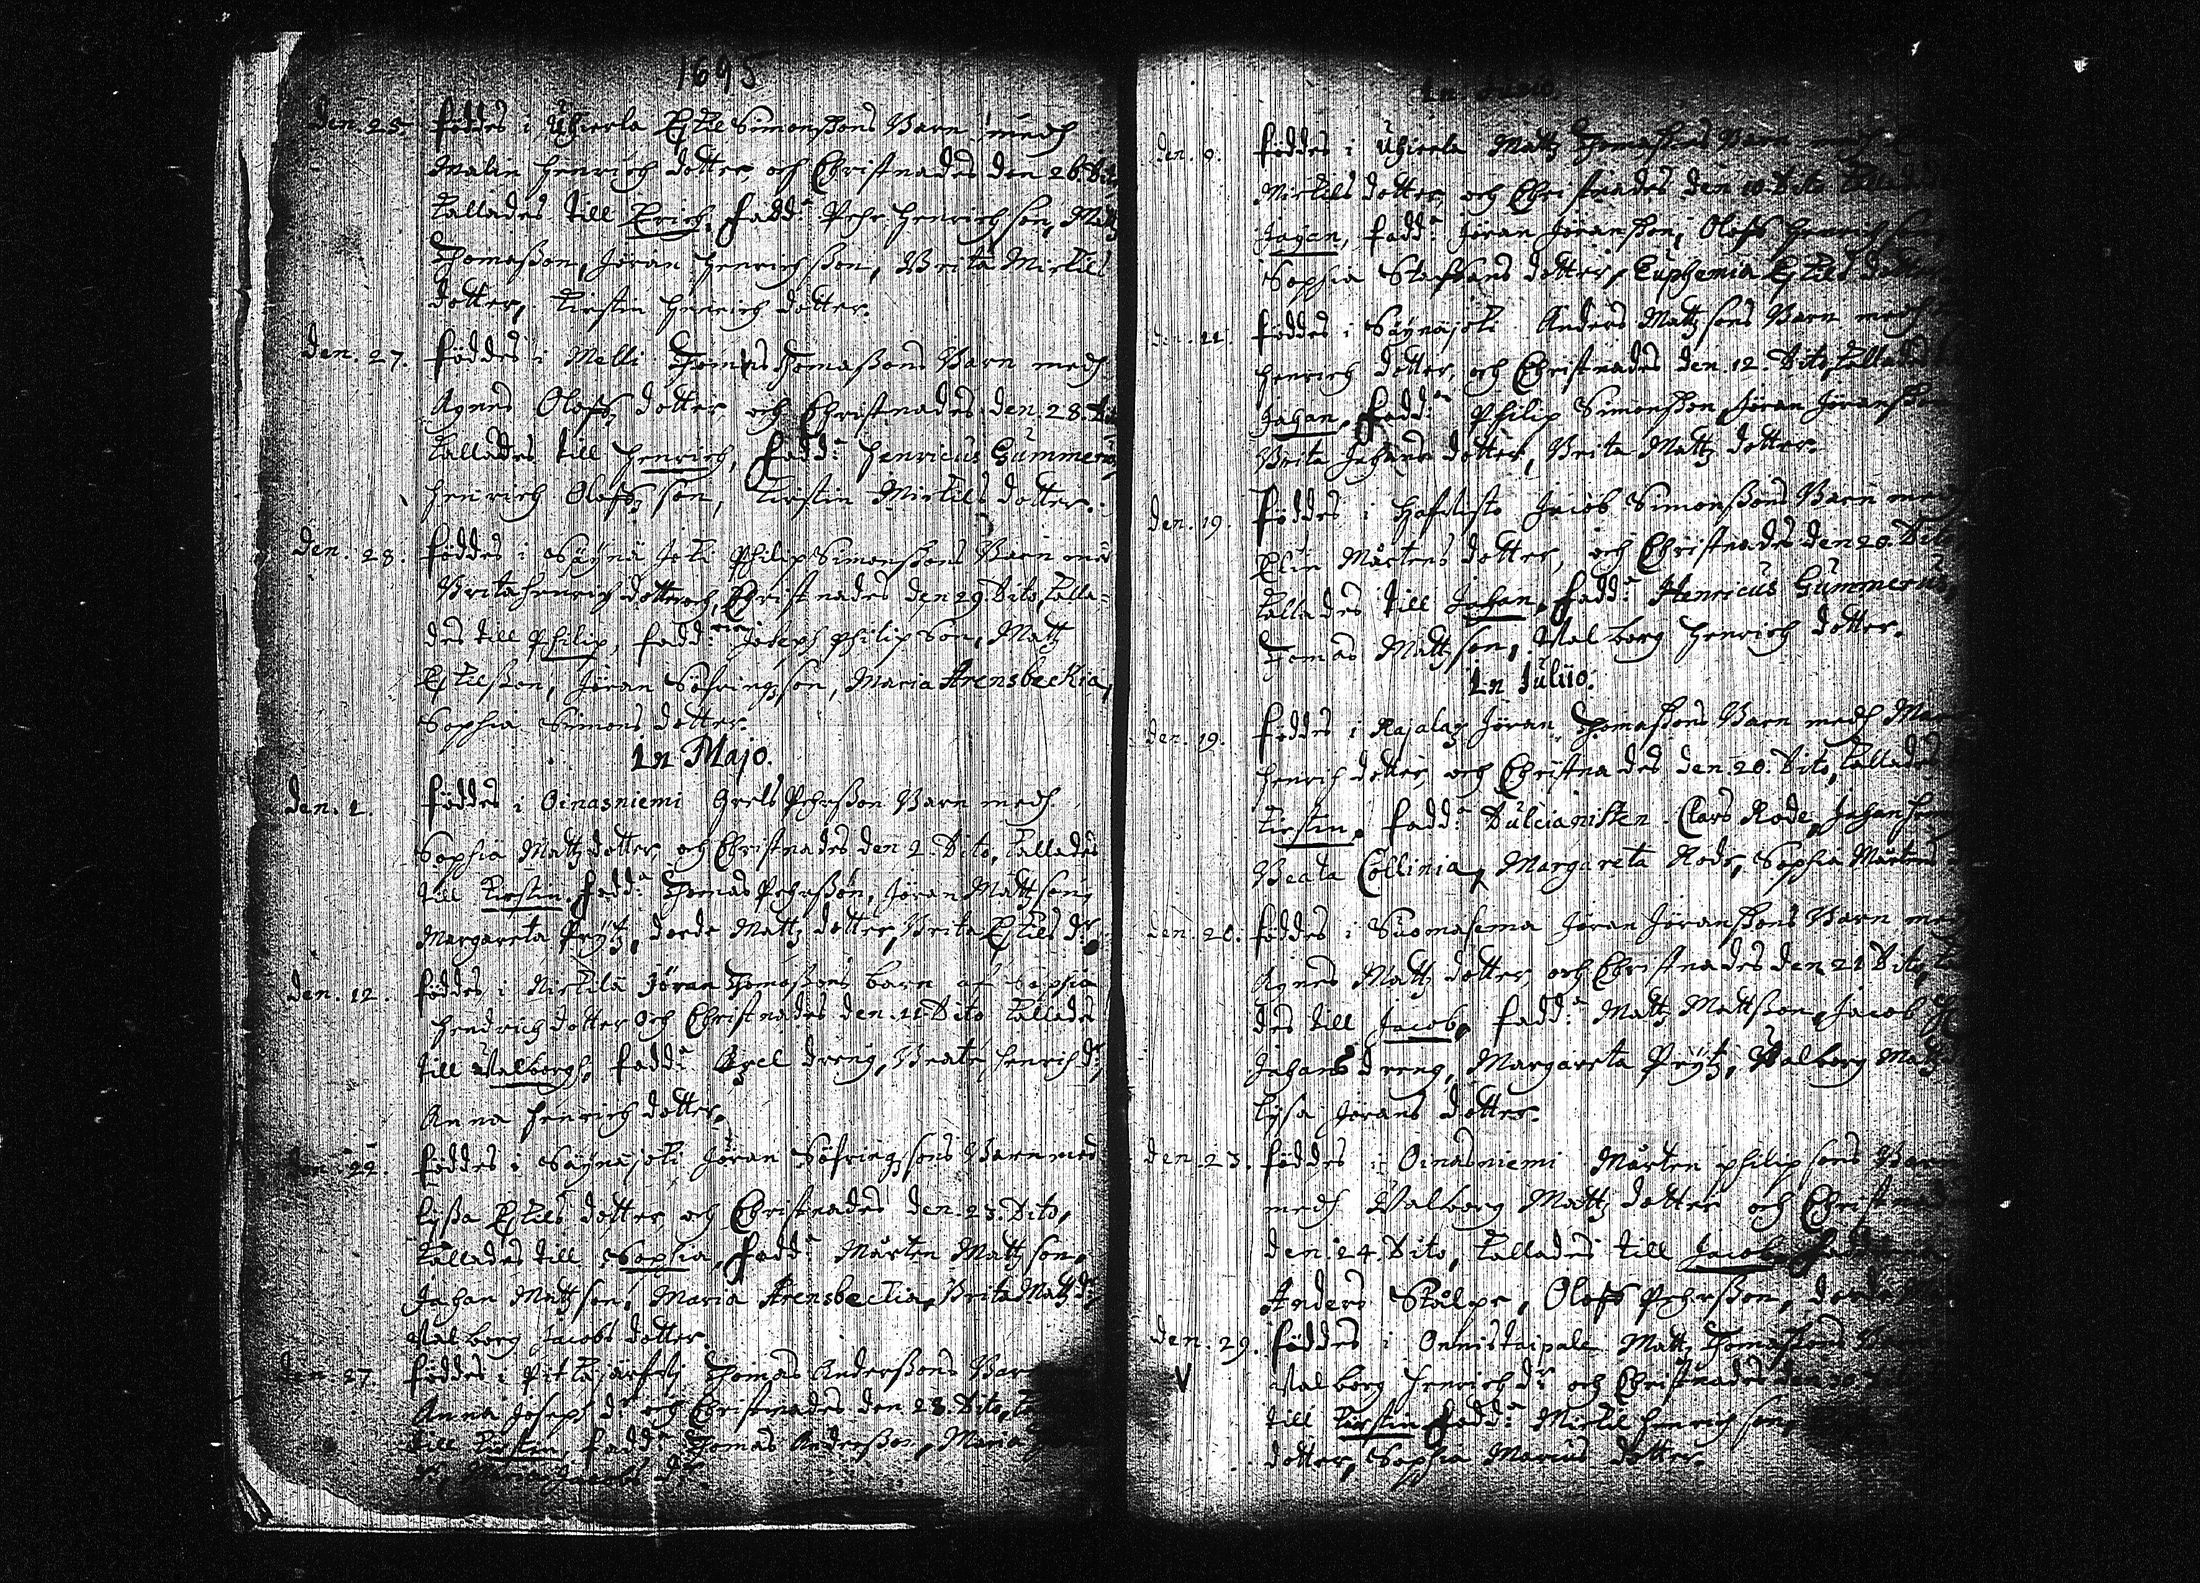 1695
den. 25. föddes i Uhierla Eskil Simonssons Barn medh
Malin Henrich dotter, och Christnades den 26 Dito
kallades till Erich, fadd: Pehr Henrichson, Matz
Thomasson, Jöran Henrichsson, Brita Mickils
dotter, Kirstin Henrich dotter.
den. 27. föddes i Melli Thomas Thomassons Barn medh
Agnes Olofz dotter och Christnades den. 28. Dito
kallades till Henrich, fadd: Henricus Gummerus,
Henrich Olofz son, Kirstin Mickils dotter.
den. 28. föddes i Säynä joki Philip Simonssons Barn med
Brita Henrich dotter och Christnades den 29 Dito, kalla-
des till Philip, fadd: Joseph Philipson, Matz
Eskilsson, Jöran Söfringzson, Maria Arensbeckia,
Sophia Simons dotter.
In Majo.
den. 1. föddes i Oinasniemi Grels Pehrsson Barn medh
Sophia Matz dotter, och Christnades den 2. Dito, kallades
till Kirstin, fadd: Thomas Pehrsson, Jöran Matzson,
Margareta Prytz, dorde Matz dotter, Brita Eskils dr.
den. 12. föddes i Mickilä Jöran Thomassons barn af Sophia
Hendrich dotter och Christnades den. 12 Dito kallades
till Walborgh, fadd: Axel dreng, Beata Henrich dr,
Anna Henrich dotter.
den. 22. föddes i Säynäjoki, Jöran Söfringzsons Barn med
Lyssa Eskils dotter, och Christnades den. 23. Dito,
kallades till Sophia, fadd: Mårten Matzson,
Johan Matzson, Maria Arensbeckia, Brita Matz dr,
Walborg Jacobs dotter.
den. 27. föddes i Thomas Anderssons Bar
Anna Joseph dr och Christnades den 28 Dito,
till Kirstin, fadd: Thomas Andersson, Maria
Maria Jacobs dr.
In Junio.
den. 9. föddes i Uhierla Matz Thomassons Barn medh
Mickils dotter, och Christnades den 10 Dito kallades
Johan, fadd: Jöran Jöransson, Olofz Henrichson
Sophia Staffans dotter, Euphemia Eskils dotter
den. 11. föddes i Säynäjoki Anders Matzsons Barn medh
Henrich dotter, och Christnades den. 12. Dito, kallades
Johan, fadd: Philip Simonsson, Jöran Jöransson
Brita Johans dotter, Brita Matz dotter.
den. 19. föddes i Jacob Simonssons Barn med
Elin Mårtens dotter, och Christnades den 20. Dito
kallades till Johan, fadd: Henricus Gummerus,
Tomas Matzson, Walborg Henrich dotter.
In Julio.
den. 19. föddes i Rajalax Jöran Thomassons Barn medh
Henrich dotter, och Christnades den. 20. Dito, kallades
Kirstin, fadd: Dulcianisten Clars Rode, Johan
Beata Collinia, Margareta Rode, Sophia Mårtens
den. 20. föddes i Suomasema Jöran Jöranssons Barn med
Agnes Matz dotter, och Christnades den 21 Dito,
des till Jacob, fadd: Matz Mattsson, Jacob
Johans dreng, Margareta Prytz, Walborg Matz
Lysa Jörans dotter.
den. 23. föddes i Oinasniemi Mårten Philipsons Barn
medh Walborg Matz dotter och Christnades
den. 24. Dito, kallades till Jacob, fadd
Anders Stålpe, Olofz Pehrsson,
den. 29. föddes i Onnistaipale Matz Thomassons
V Walborg Henrich dr och Christnades den 30
till Kirstin fadd: Mickil Henrichson,
dotter, Sophia Marcus dotter.